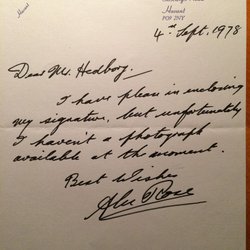 Havant
PO9 2NY
4th Sept. 1978
Dear Mr. Hedborg.
I have pleasure in enclosing
my signature, but unfortunately
I haven't a photograph
available at the moment.
Best Wishes
Alec Rose